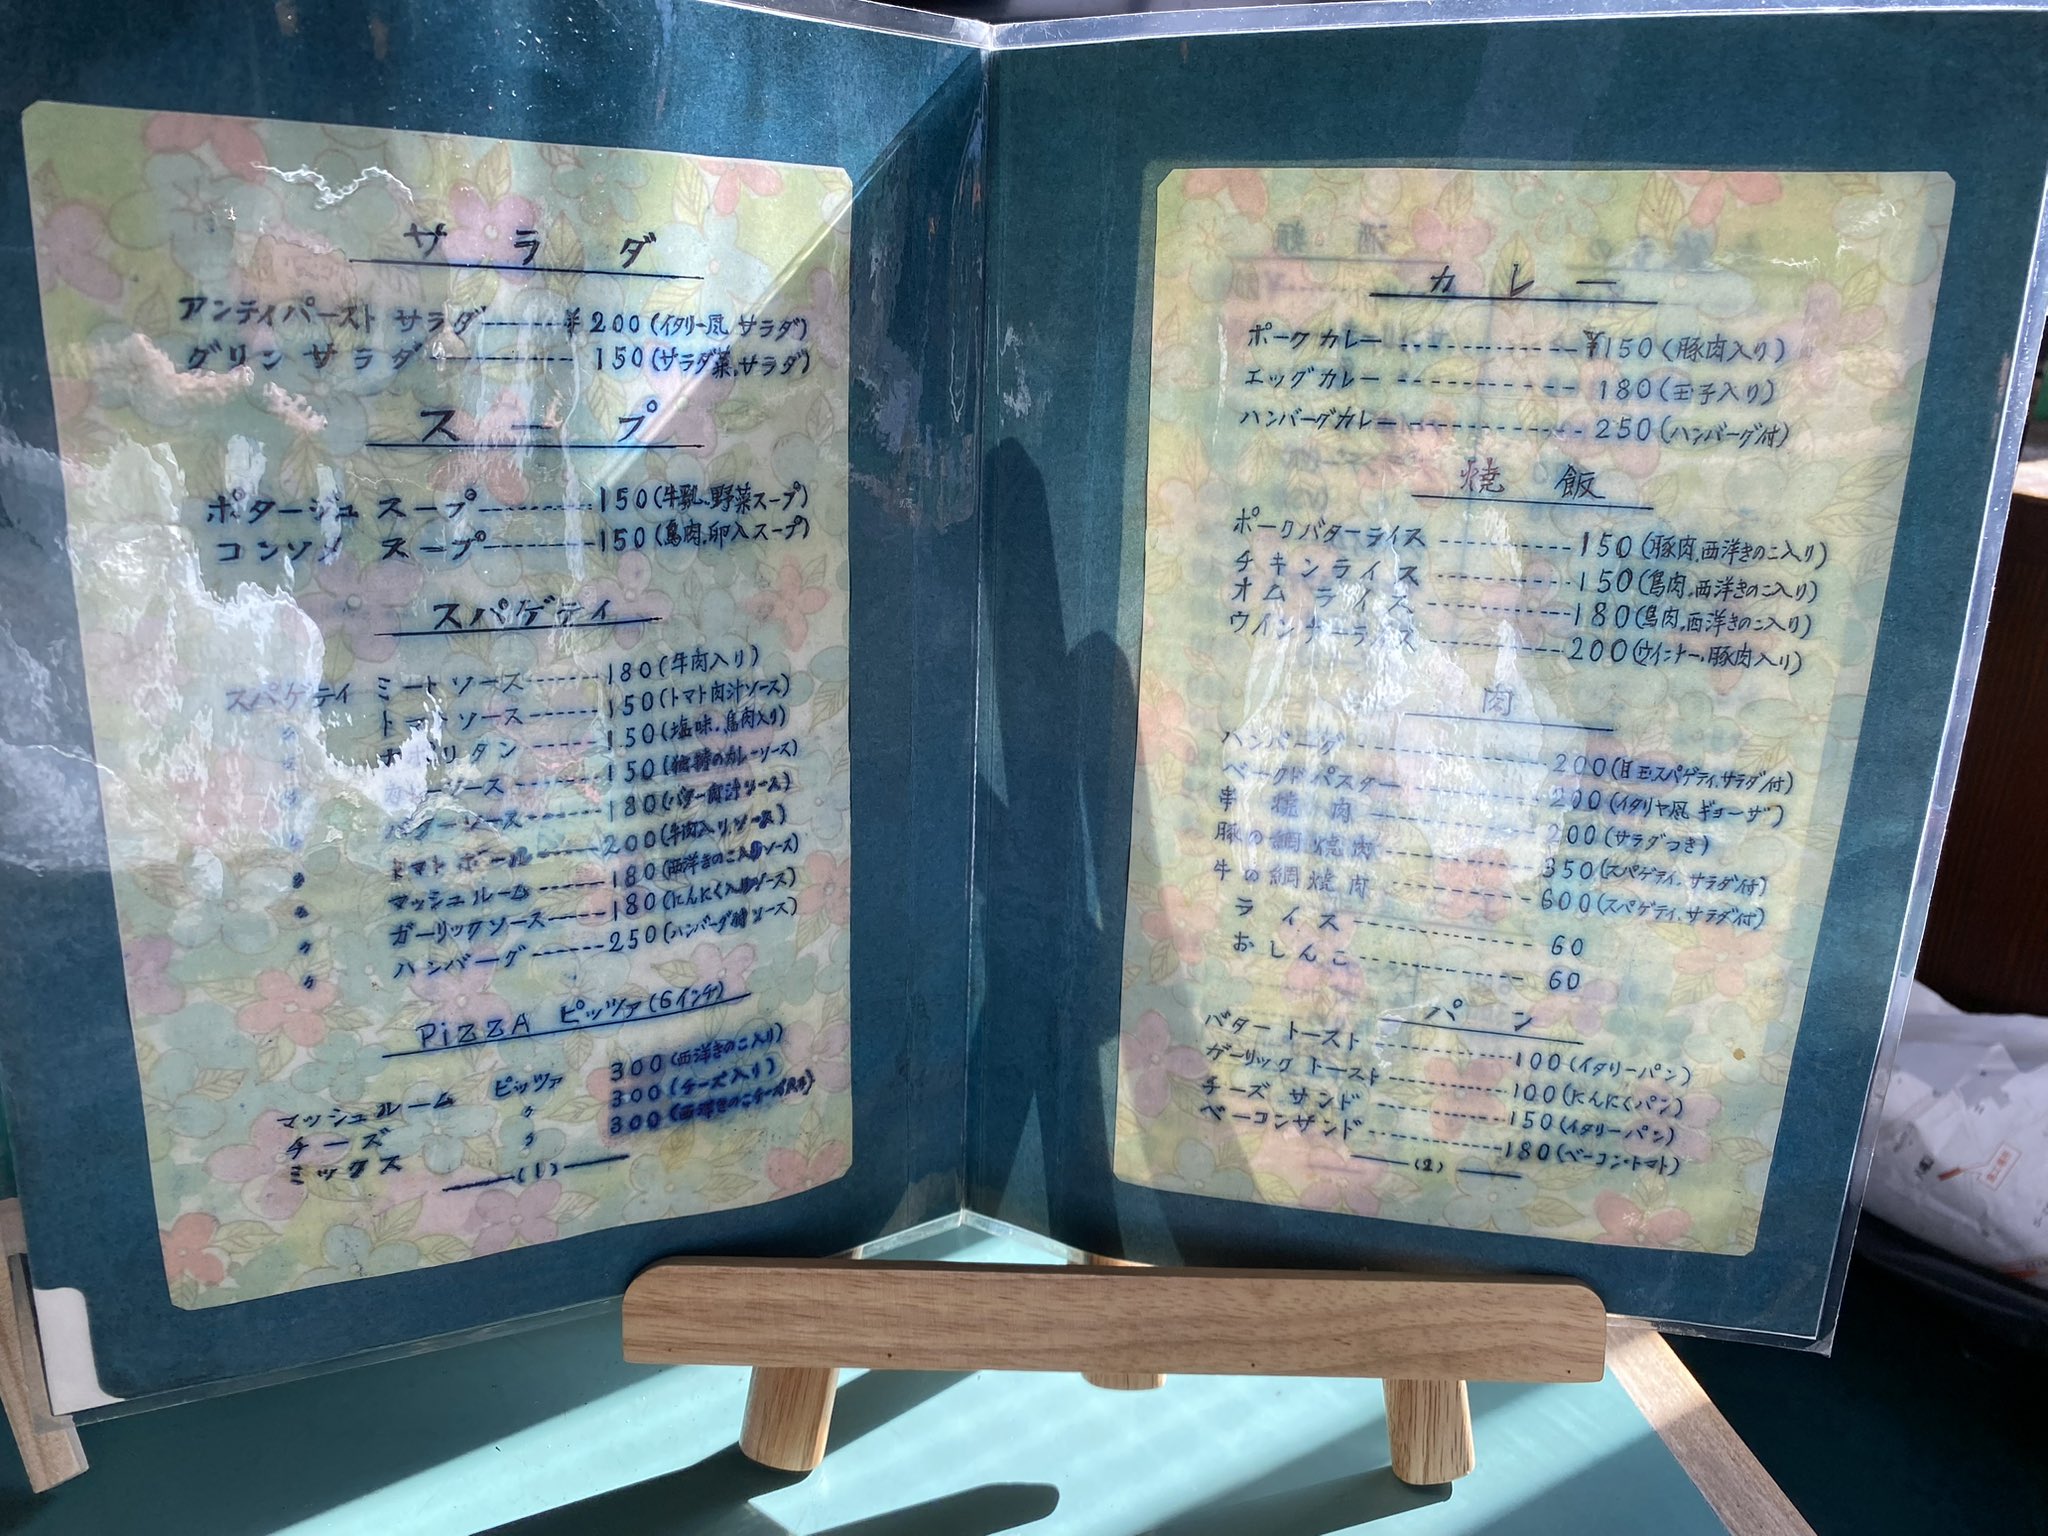 サラダ
アンティパースト サラダ------¥200(イタリー風サラダ)
グリンサラダ------150(サラダ菜.サラダ)
スープ
ポタージュ スープ------150(牛乳.野菜スープ)
コンソメ スープ------150(鳥肉.卵入スープ)
スパゲティ
スパゲティ ミートソース------180(牛肉入り)
〃 トマトソース------150(トマト肉汁ソース)
〃 ナポリタン------150(塩味.鳥肉入り)
〃 カレーソース------150(のカレーソース)
〃 バターソース------180(バター肉汁ソース)
〃 トマトボール------200(牛肉入り.ソース)
〃 マッシュルーム------180(西洋きのこ入りソース)
〃 ガーリックソース------180(にんにく入りソース)
〃 ハンバーグ------250(ハンバーグ付ソース)
PiZZA ピッツァ(6インチ)
マッシュルーム ピッツァ 300(西洋きのこ入り)
チーズ 〃 300(チーズ入り)
ミックス 〃 300(西洋きのこチーズ)
(1)
カレー
ポークカレー------¥150(豚肉入り)
エッグカレー------180(玉子入り)
ハンバーグカレー------250(ハンバーグ付)
焼飯
ポークバターライス------150(豚肉.西洋きのこ入り)
チキンライス------150(鳥肉.西洋きのこ入り)
オムライス------180(鳥肉.西洋きのこ入り)
ウインナーライス------200(ウインナー.豚肉入り)
肉
ハンバーグ------200(目玉.スパゲティ.サラダ付)
ベークドパスター------200(イタリヤ風ギョーザ)
串焼肉------200(サラダつき)
豚の網焼肉------350(スパゲティ.サラダ付)
牛の網焼肉------600(スパゲティ.サラダ付)
ライス------60
おしんこ------60
パン
バタートースト------100(イタリーパン)
ガーリックトースト------100(にんにくパン)
チーズサンド------150(イタリーパン)
ベーコンサンド------180(ベーコン・トマト)
(2)